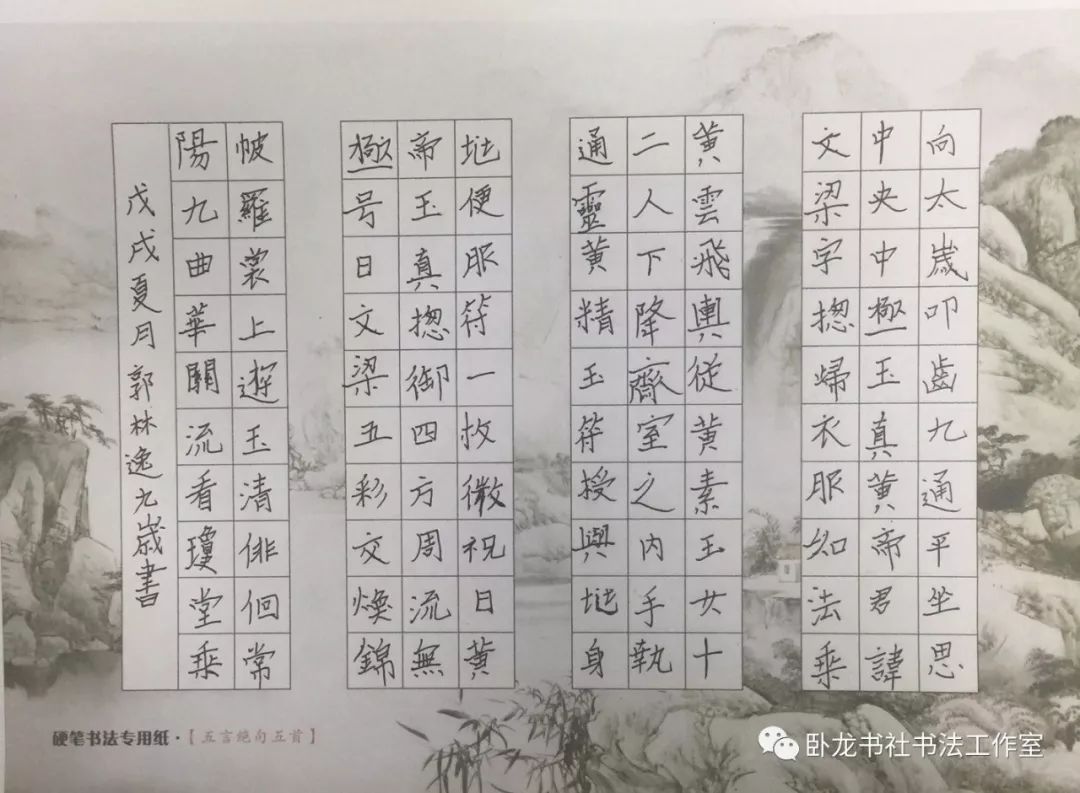 向太歲叩齒九通平坐思
中央中極玉真黃帝君諱
文梁字揔歸衣服如法乘
黃雲飛輿從黃素玉女十
二人下降齋室之內手執
通靈黃精玉符授與身
便服符一枚微祝曰黃
帝玉真揔御四方周流無
極号曰文梁五彩交煥錦
帔羅裳上遊玉清俳佪常
陽九曲華關流看瓊堂乘
戊戌夏月郭林逸九歲書
硬笔书法专用纸·【五言绝句五首】
卧龙书社书法工作室